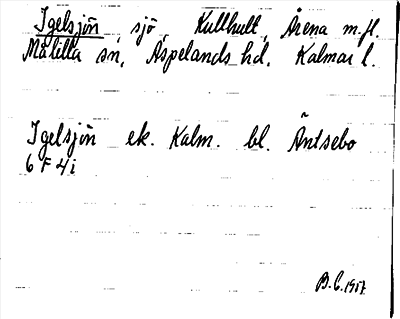 Igelsjön, sjö, Kullhult, Årena m.fl.
Målilla sn, Aspelands hd. Kalmar l.
Igelsjön ek. Kalm. bl. Äntsebo
6 F 4 i
B.C. 1967